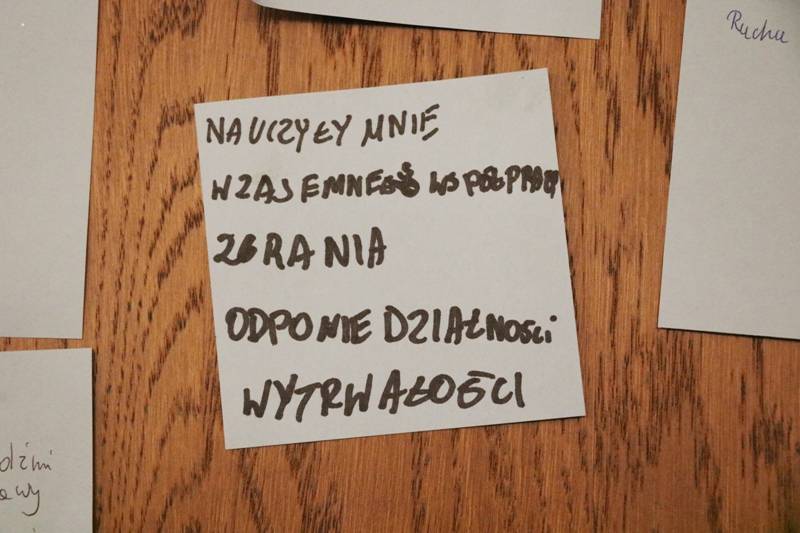 Ruchu
NAUCZYŁY MNIE
WZAJEMNEJ WSPÓŁPRACY
ZGRANIA
ODPOWIEDZIAŁNOŚCI
WYTRWAŁOŚCI